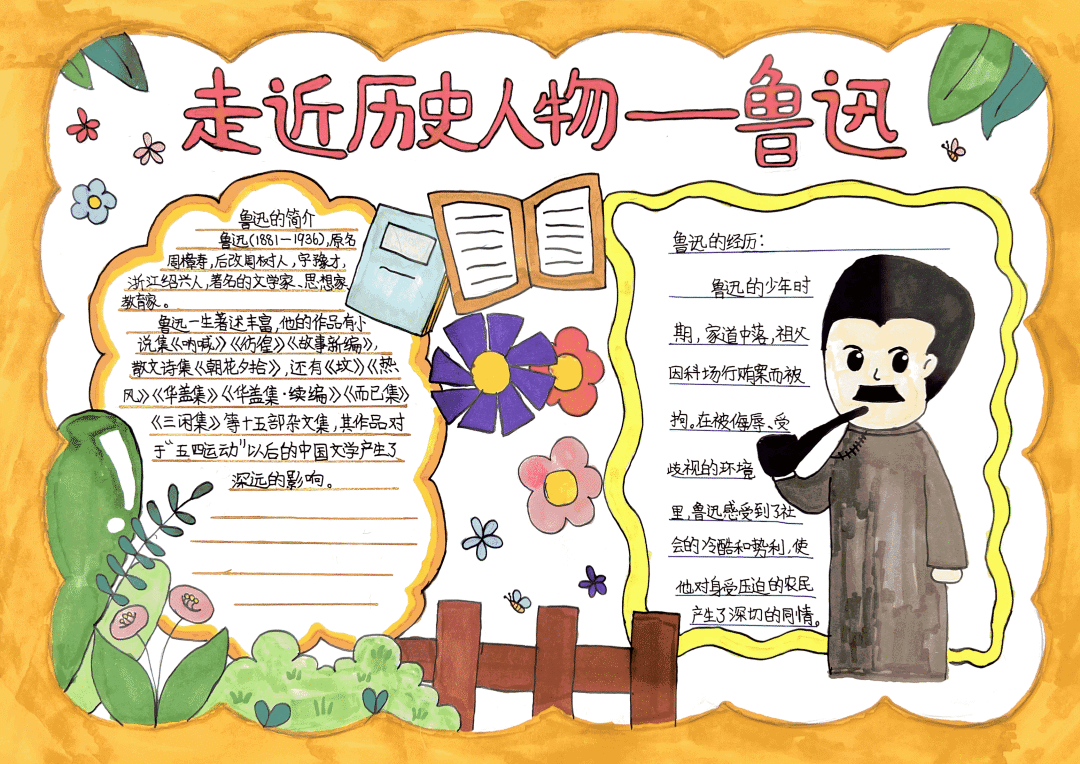 走近历史人物——鲁迅
鲁迅的简介
鲁迅(1881—1936),原名
周樟寿,后改周树人,字豫才,
浙江绍兴人,著名的文学家、思想家
教育家。
鲁迅一生著述丰富,他的作品有小
说集《呐喊》《彷徨》《故事新编》,
散文诗集《朝花夕拾》,还有《坟》《热
风》《华盖集》《华盖集·续编》《而已集》
《三闲集》等十五部杂文集,其作品对
于“五四运动”以后的中国文学产生了
深远的影响。
鲁迅的经历:
鲁迅的少年时
期,家道中落,祖父
因科场行贿案而被
拘。在被侮辱、受
歧视的环境
里,鲁迅感受到了社
会的冷酷和势利,使
他对身受压迫的农民
产生了深切的同情。